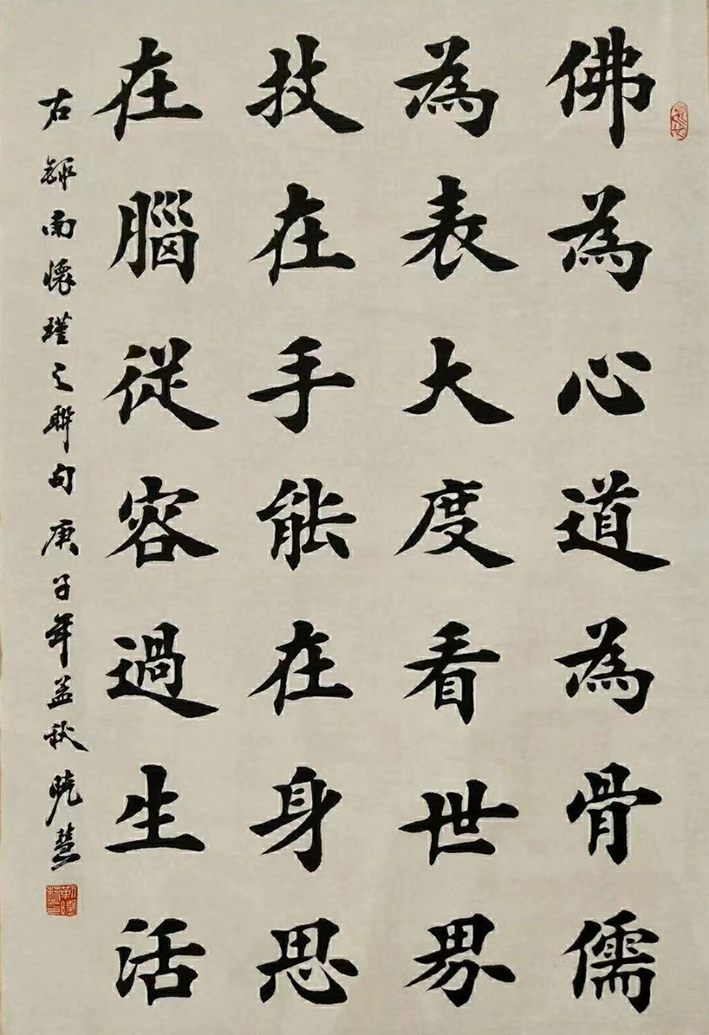 佛為心道為骨儒
為表大度看世界
技在手能在身思
在腦從容過生活
右錄南懷瑾之聯句庚子年孟秋曉慧